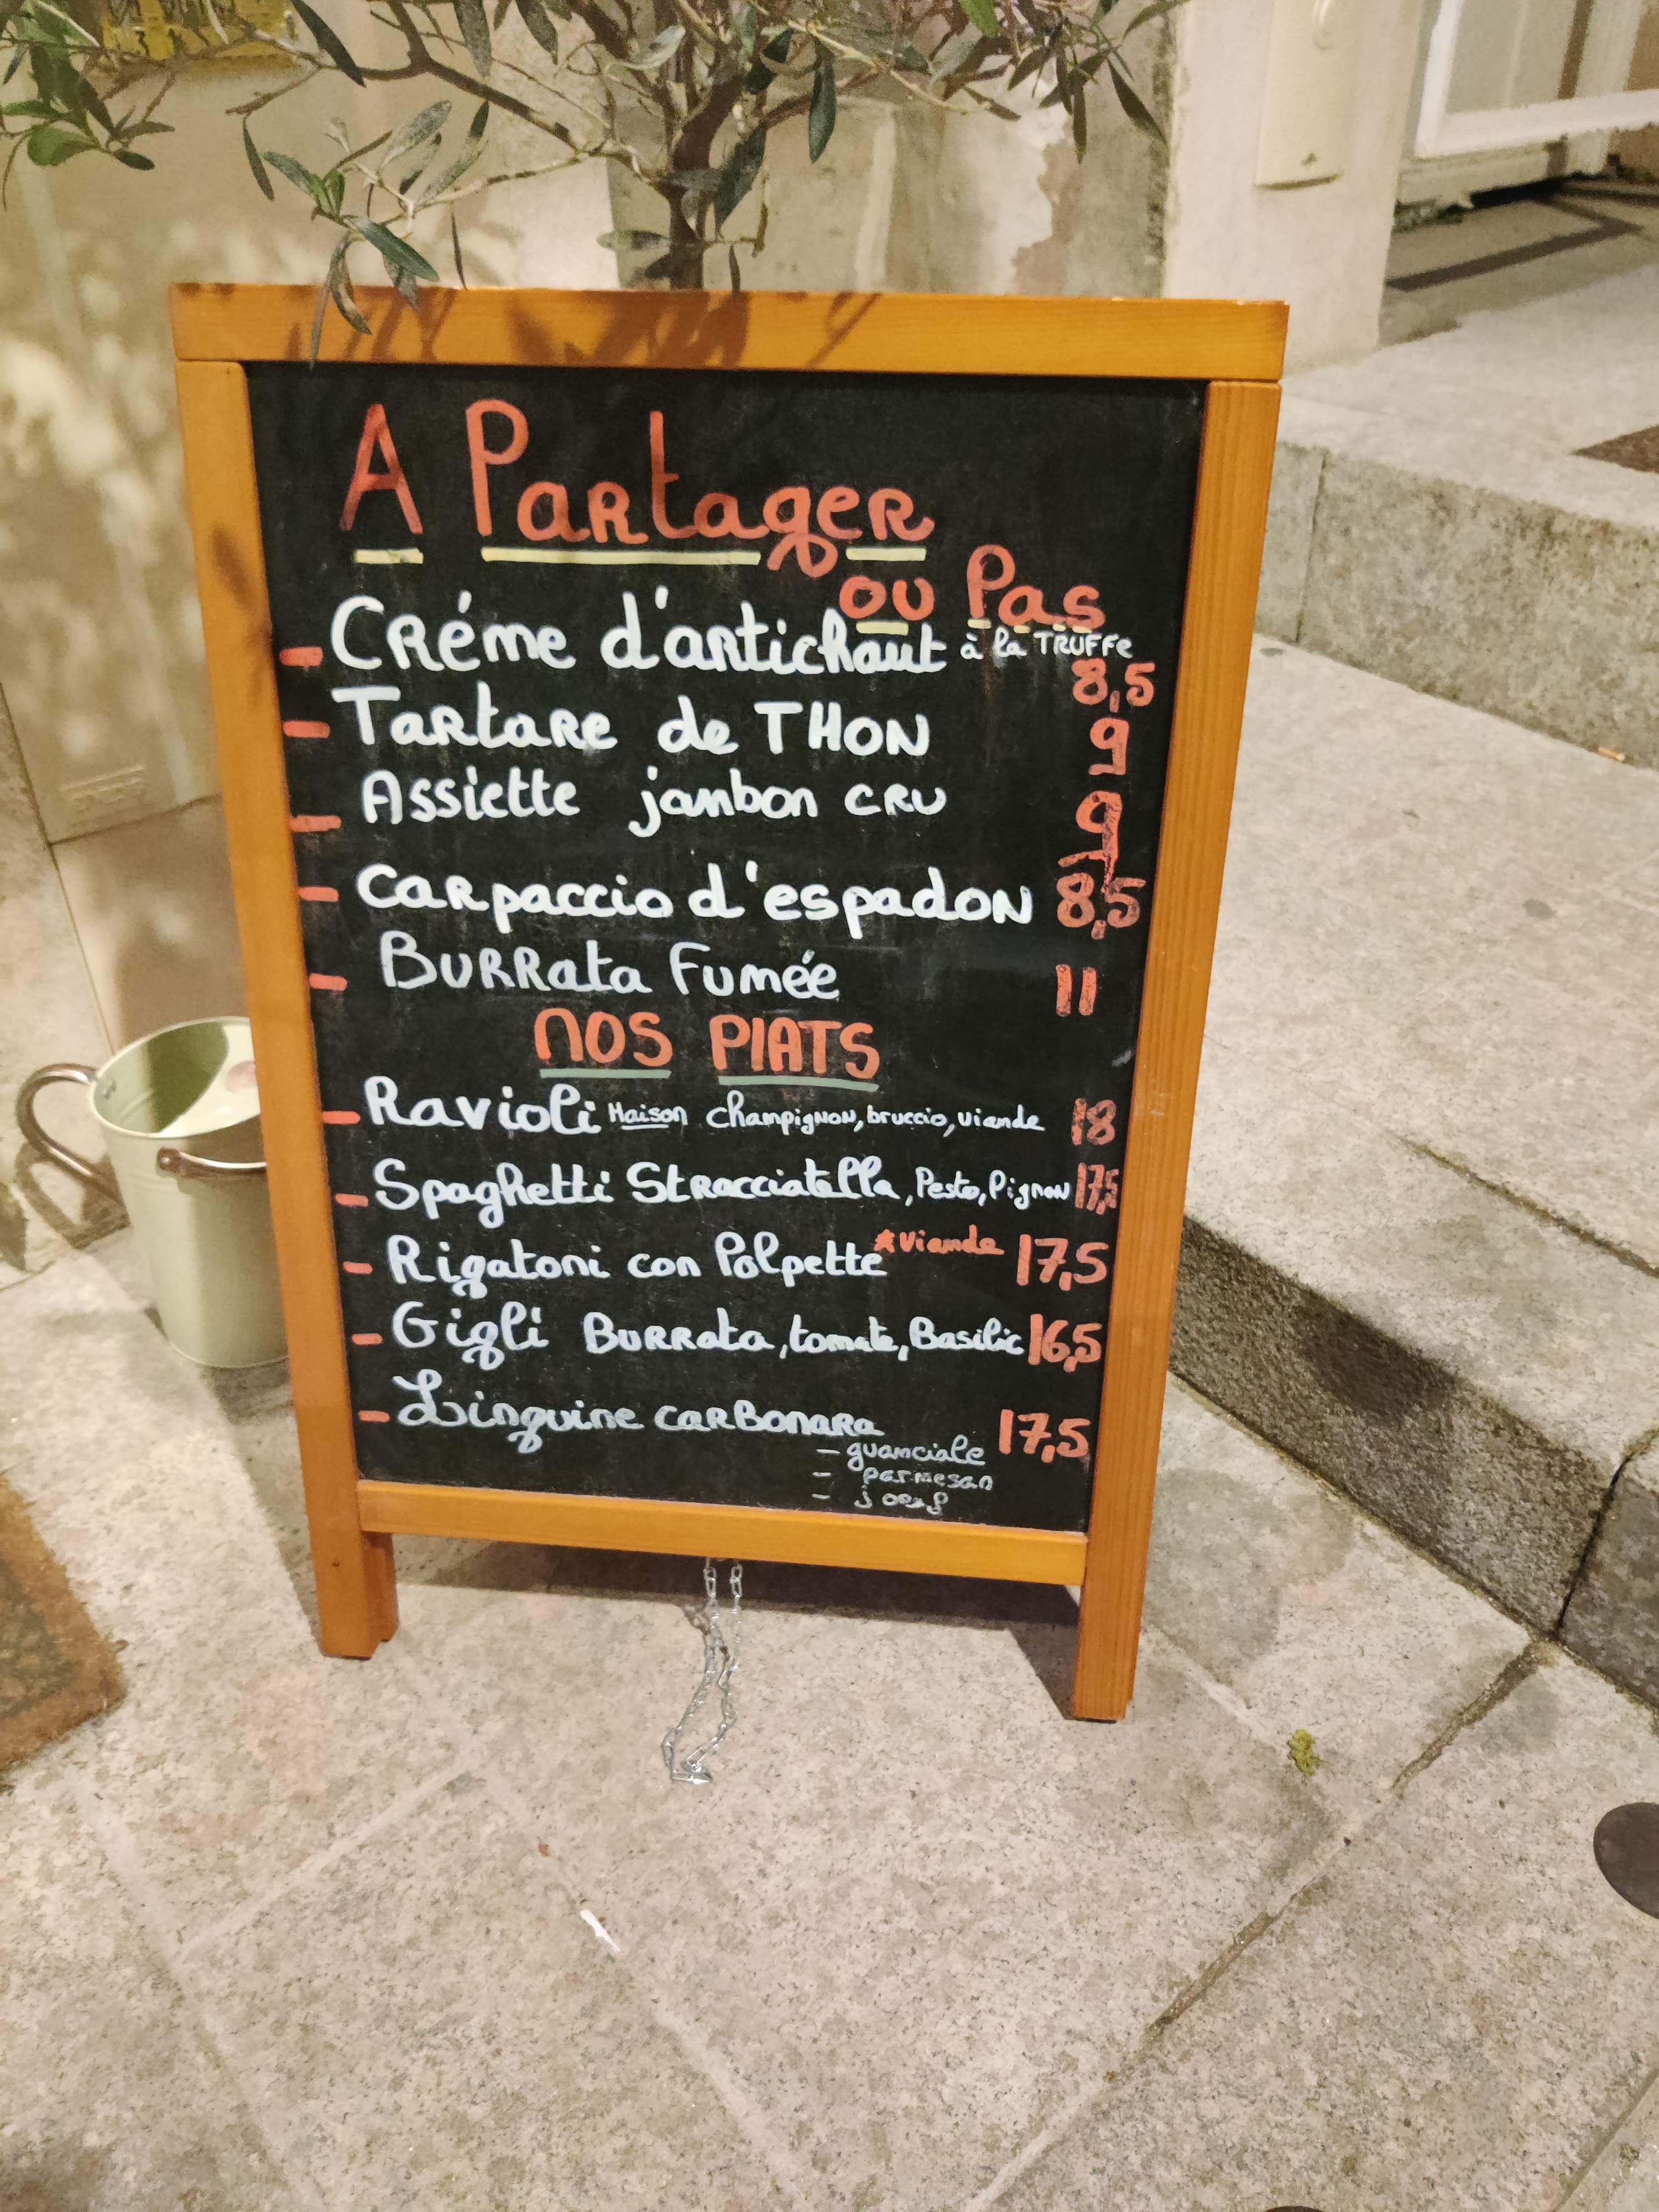 A Partager
ou Pas
- Créme d'artichaut à la TRUFFe 8,5
- Tartare de THON 9
- Assiette jambon CRU 9
- Carpaccio d'espadon 8,5
- BURRata Fumée 11
NOS PlATS
- Ravioli Maison Champignon, bruccio, viande 18
- Spaghetti Stracciatella, Pesto, Pignon 17,5
- Rigatoni con Polpette *viande 17,5
- Gigli BURRata, tomate, Basilic 16,5
- Linguine CARBonara 17,5
- guanciale
- parmesan
- j oeuf